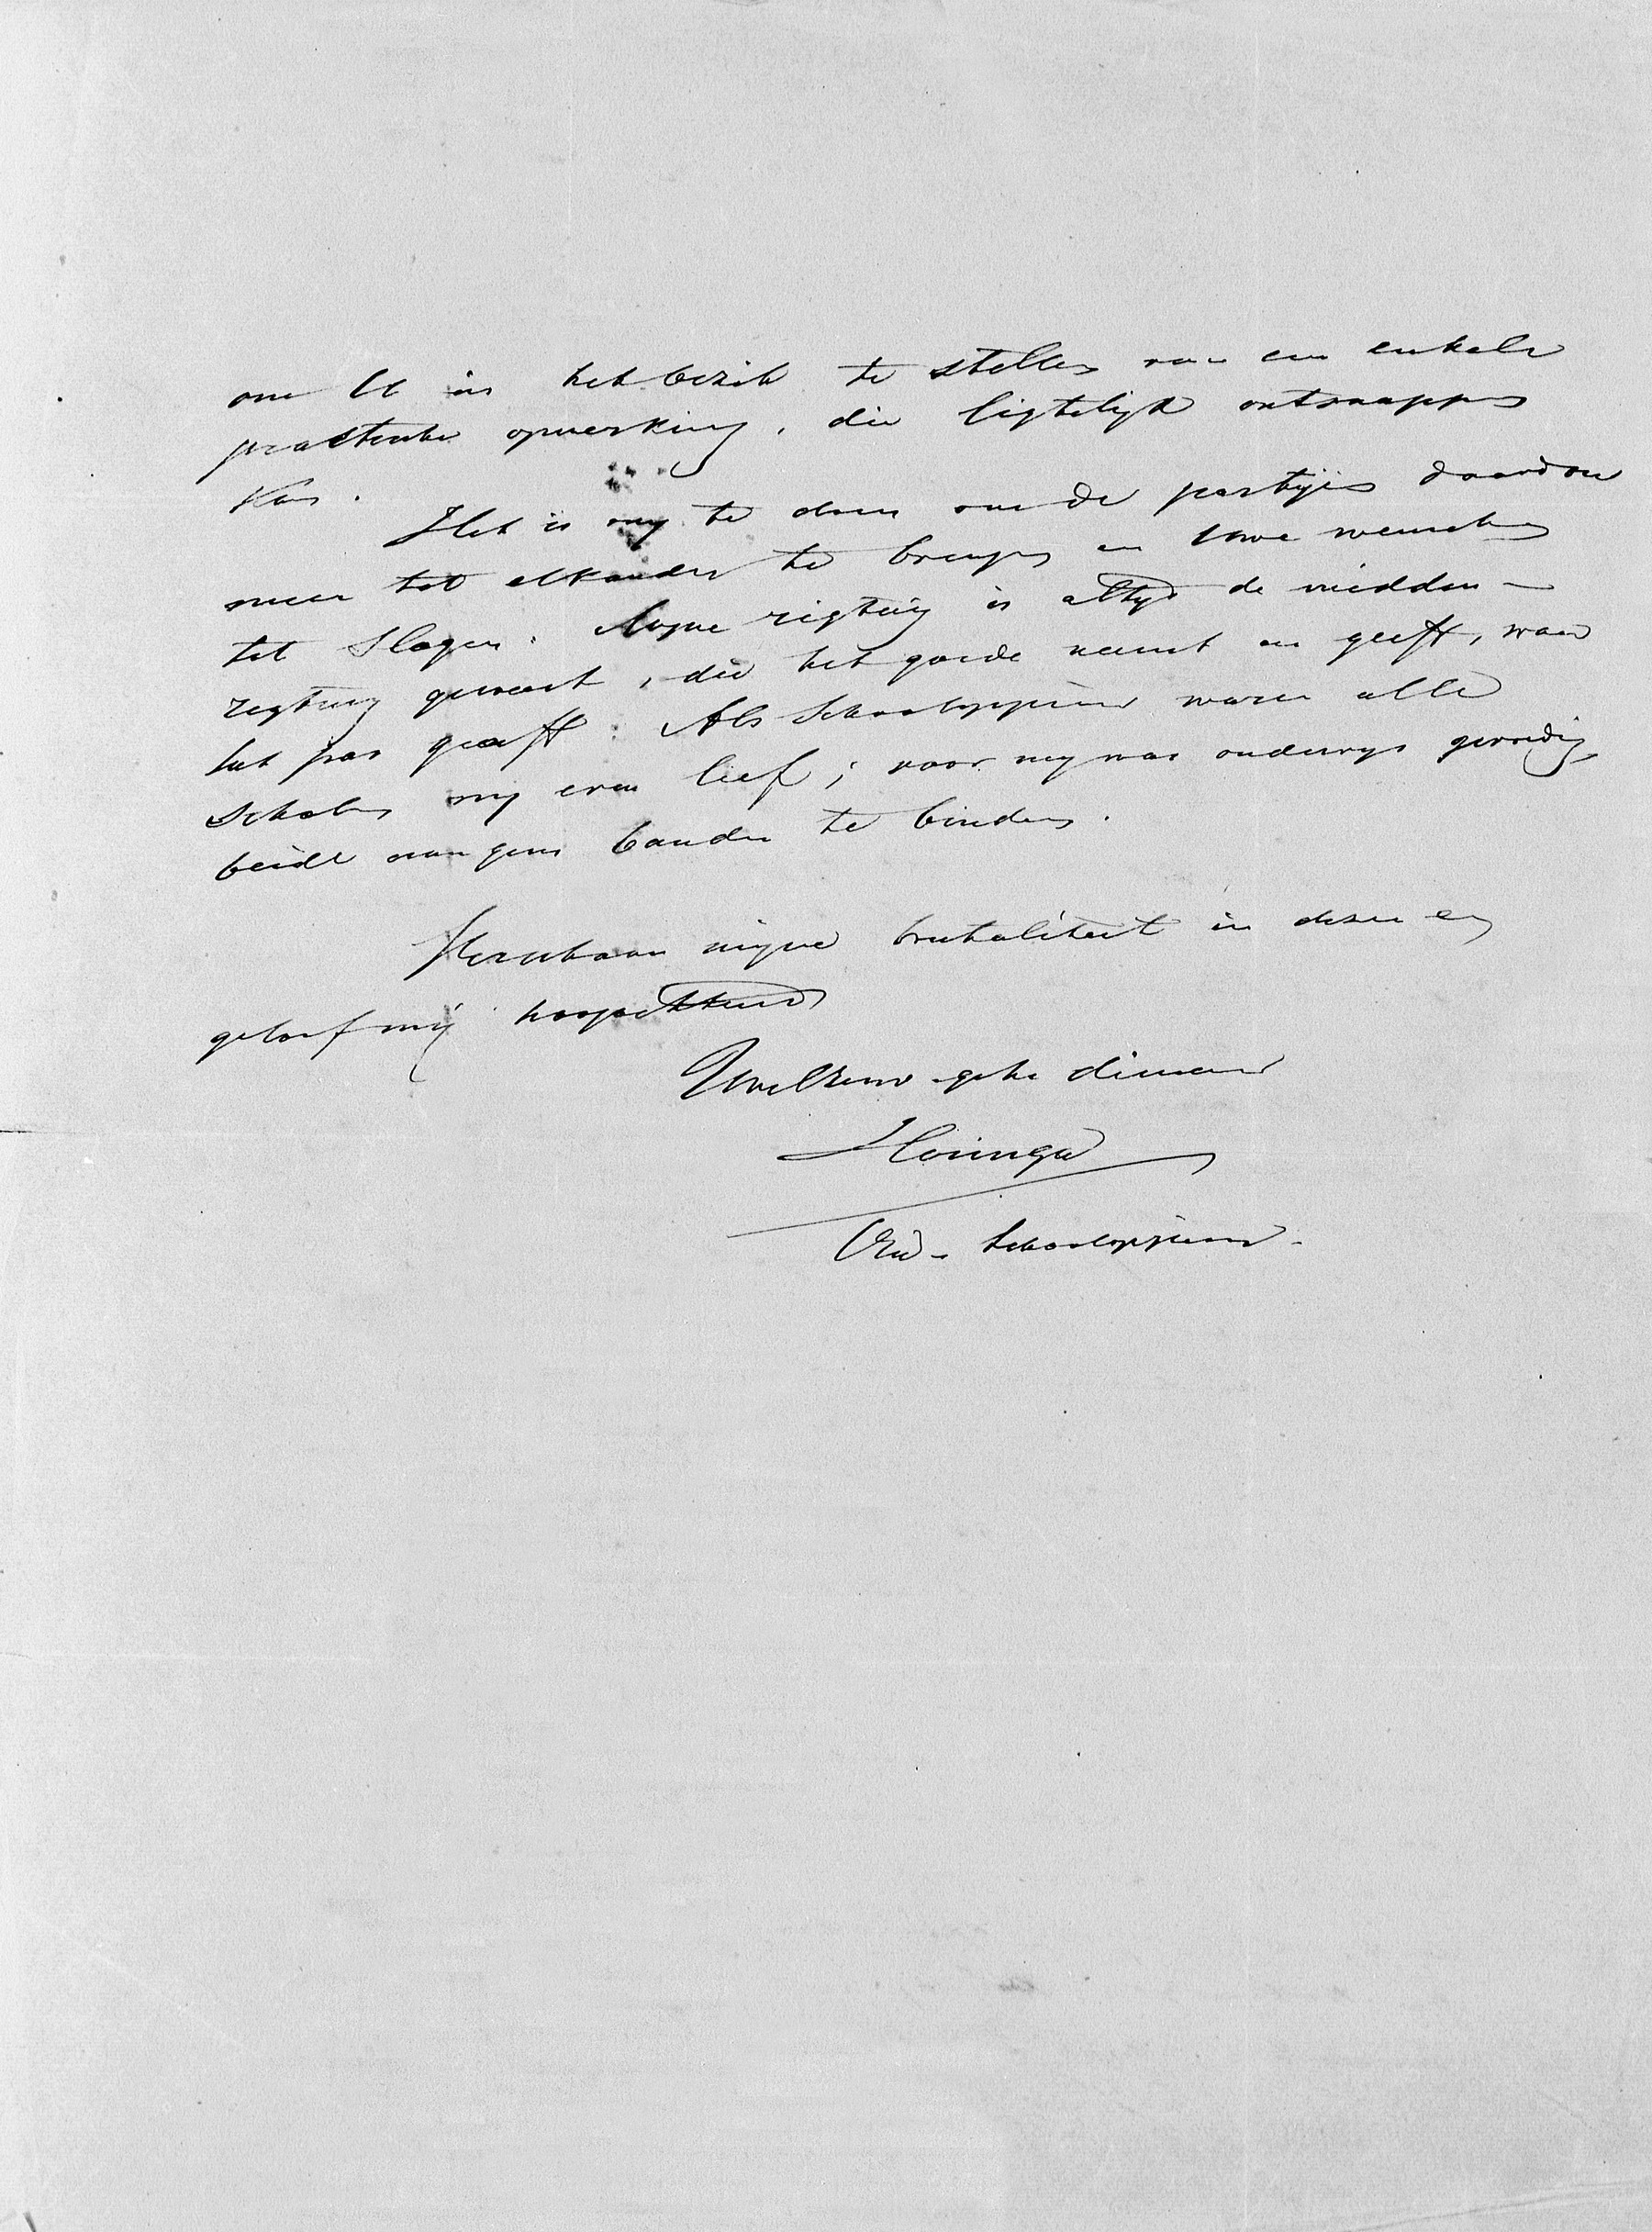 om U in het bezit te stellen van een enkele
practische opmerking, die ligtelijk ontsnappen
kan.
Het is my te doen om de partijen daardoor
meer tot elkander te brengen en Uwe wenschen
tot slagen. Myne rigting is altyd de midden-
rigting geweest, die het goede neemt en geeft, waar
het pas geeft. Als Schoolopziener waren alle
Scholen my even lief; voor my was onderwys
beide aan geen banden te binden.
Verschoon mijne brutaliteit in deze en
geloof mij hoogachtend
UwelEerw. geh. dienaar
Oud-Schoolopziener.